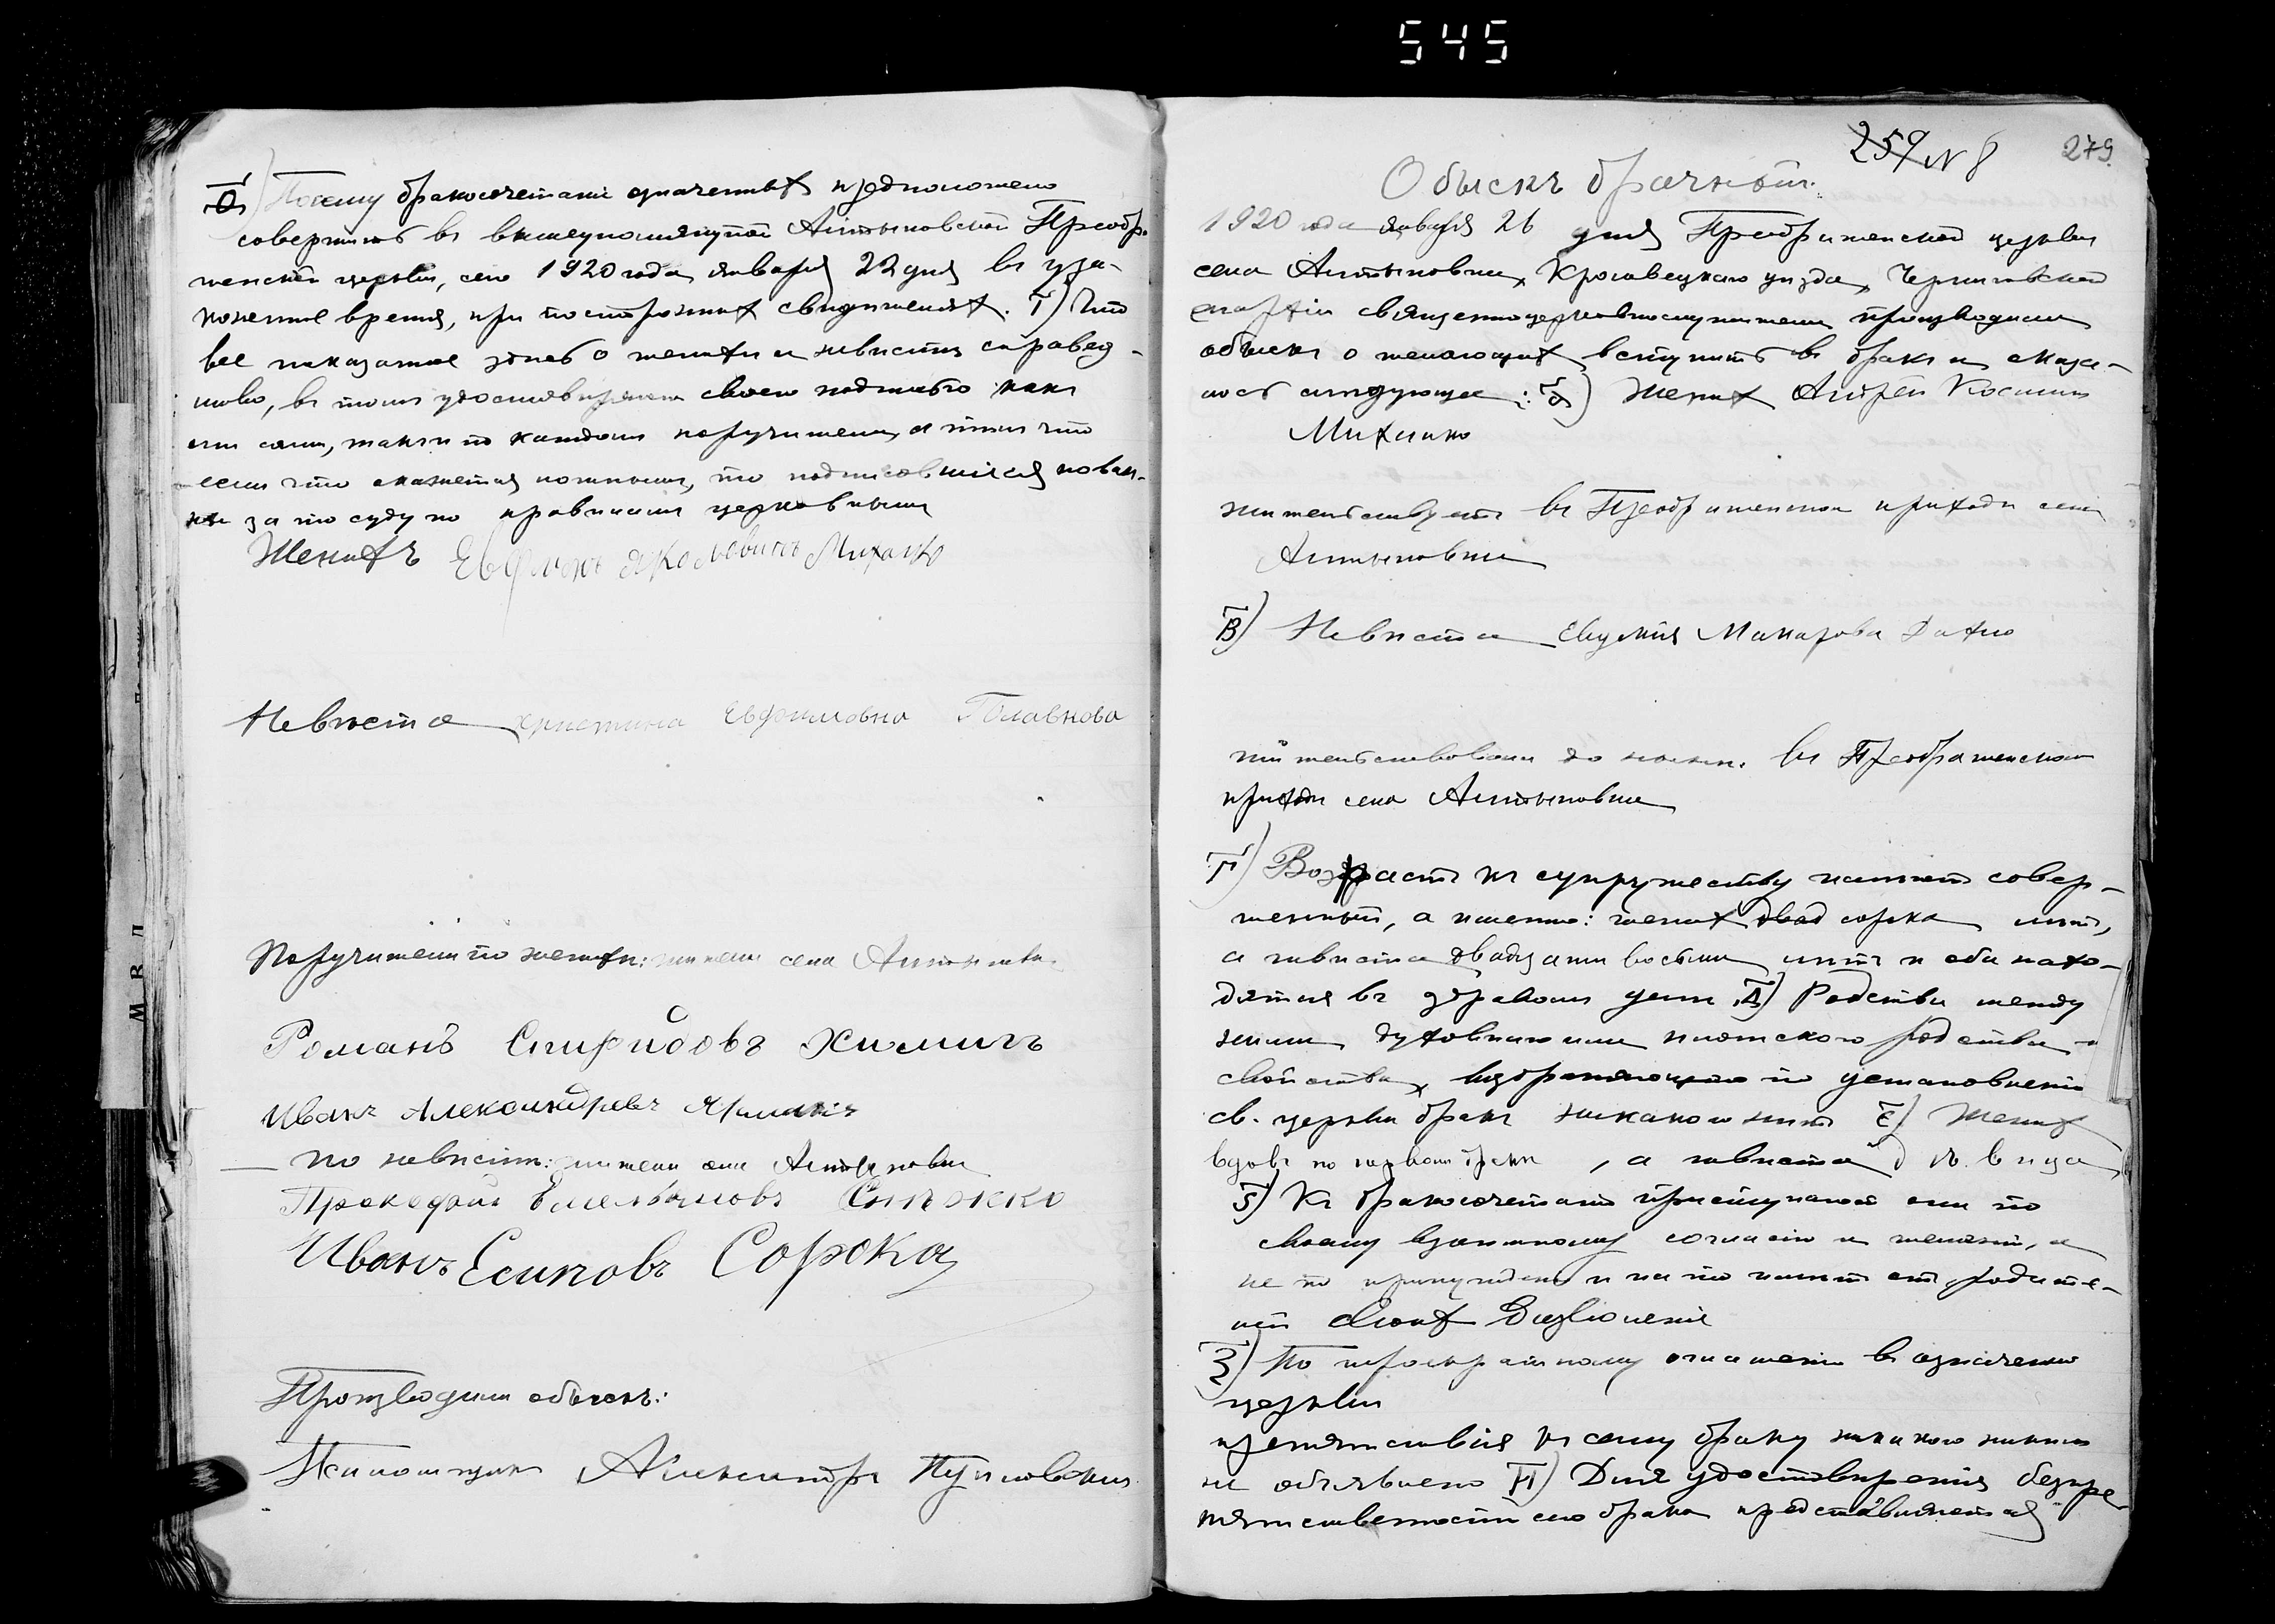 545
Ѳ) Посему бракосочетаніе означенныхъ предположено
совершить въ вышеупомянутой Алтыновской Преобра-
женской церкви, сего 1920 года января 22 дня въ уза-
коненное время, при постороннихъ свидѣтеляхъ. І) Что
все показанное здѣсь о женихѣ и невѣстѣ справед-
ливо, въ томъ удостовѣряютъ своею подписью какъ
они сами, такъ и по каждомъ поручители, съ тѣмъ что
если что окажется ложнымъ, то подписавшіеся повин-
ны за то суду по правиламъ церковнымъ
Женихъ Евфимъ Яковлевичъ Михалко
Невѣста Христина Евфимовна Головкова
Поручители по женихѣ: жители села Алтыновки
Романъ Спиридовъ Химичъ
Иванъ Александровъ
по невѣстѣ: жители села Алтыновки
Прокофій Емельяновъ Снѣжко
Иванъ Есиповъ Сорока
Производили обыскъ:
Псаломщикъ Александръ
259 N 8
279
Обыскъ брачный.
1920 года января 26 дня Преображенской церкви
села Алтыновки, Кролевецкаго уѣзда, Черниговской
епархіи священноцерковнослужители производили
обыскъ о желающихъ вступить въ бракъ и оказа-
лось слѣдующее: а) Женихъ Андрей Косминъ
Михалко
жительствуетъ въ Преображенскомъ приходѣ села
Алтыновки
В) Невѣста Евдокія Макарова Дахно
жительствовала до нынѣ въ Преображенскомъ
приходѣ села Алтыновки
Г) Возрастъ къ супружеству имѣютъ совер-
шенный, а именно: женихъ сорока лѣтъ,
а невѣста двадцати восьми лѣтъ и оба нахо-
дятся въ здравомъ умѣ Д) Родства между
ними духовнаго или плотскаго родства и
свойства, возбраняющаго по установленію
св. церкви бракъ никакого нѣтъ Е) Женихъ
вдовъ по первомъ бракѣ, а невѣста дѣвица
Ѕ) Къ бракосочетанію приступаютъ они по
своему взаимному согласію и желанію, а
не по принужденію и на то имѣютъ отъ родите-
лей своихъ дозволеніе
З) По троекратному оглашенію въ означенной
церкви
препятствія къ сему браку никакого никѣмъ
не объявлено И) Для удостовѣренія безпре-
пятственности сего брака представляется